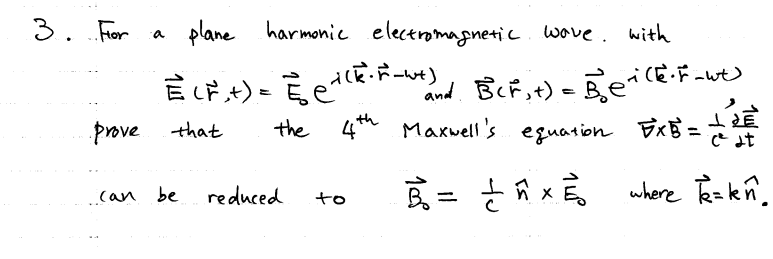 3. For a plane harmonic electromagnetic wave. with
E⃗(r⃗,t) = E⃗₀e^{i(k⃗·r⃗-ωt)} and B⃗(r⃗,t) = B⃗₀e^{i(k⃗·r⃗-ωt)},
prove that the 4th Maxwell's equation ∇⃗×B⃗ = 1/c² ∂E⃗/∂t
can be reduced to B⃗₀ = 1/c n̂ × E⃗₀ where k⃗=kn̂.